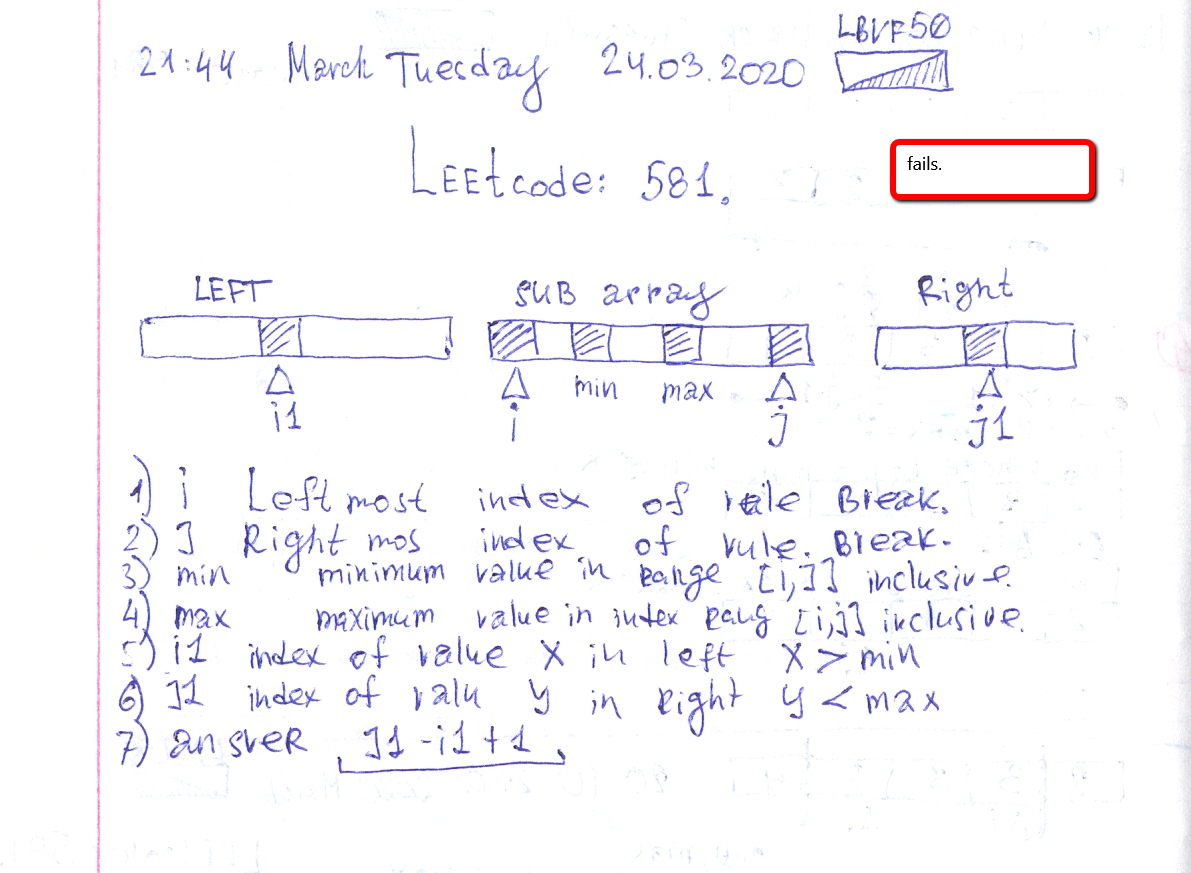 LBVF50
21:44 March Tuesday 24.03.2020
fails.
LEEtcode: 581.
LEFT SUB array Right
min max
i1 i j j1
1) i Left most index of rule Break.
2) J Right mos index of rule. Break.
3) min minimum value in Range [i,J] inclusive.
4) max maximum value in index Rang [i,j] inclusive.
5) i1 index of value X in left X > min
6) J1 index of valu y in Right y < max
7) ansveR J1 - i1 + 1.